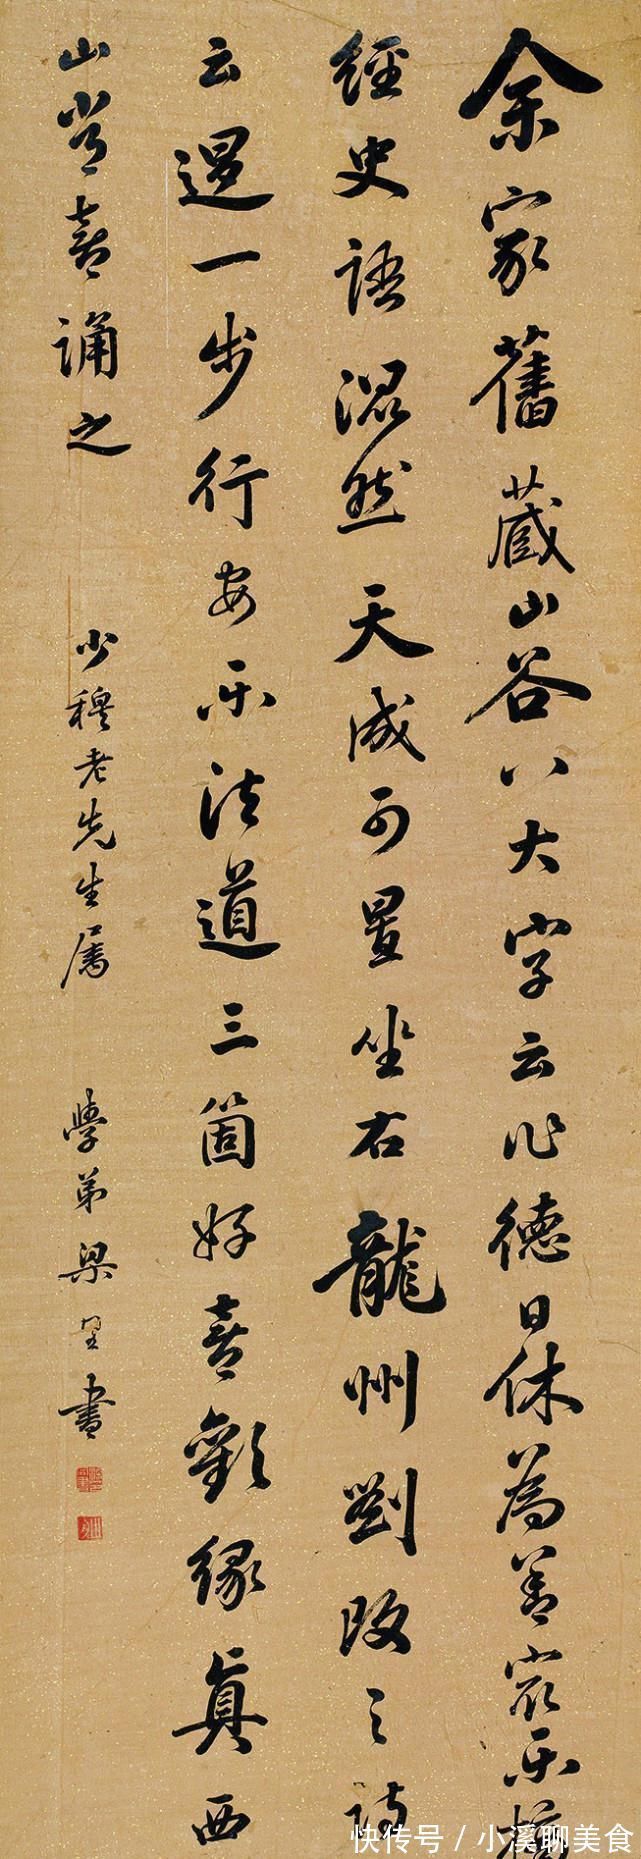 余家舊藏山谷八大字云作德日休為善冣樂摘
經史語混然天成可置坐右龍州劉改之詩
云退一步行安樂法道三箇好喜歡緣真西
山常喜誦之
少穆老先生屬
學弟梁
書
快传号 / 小溪聊美食